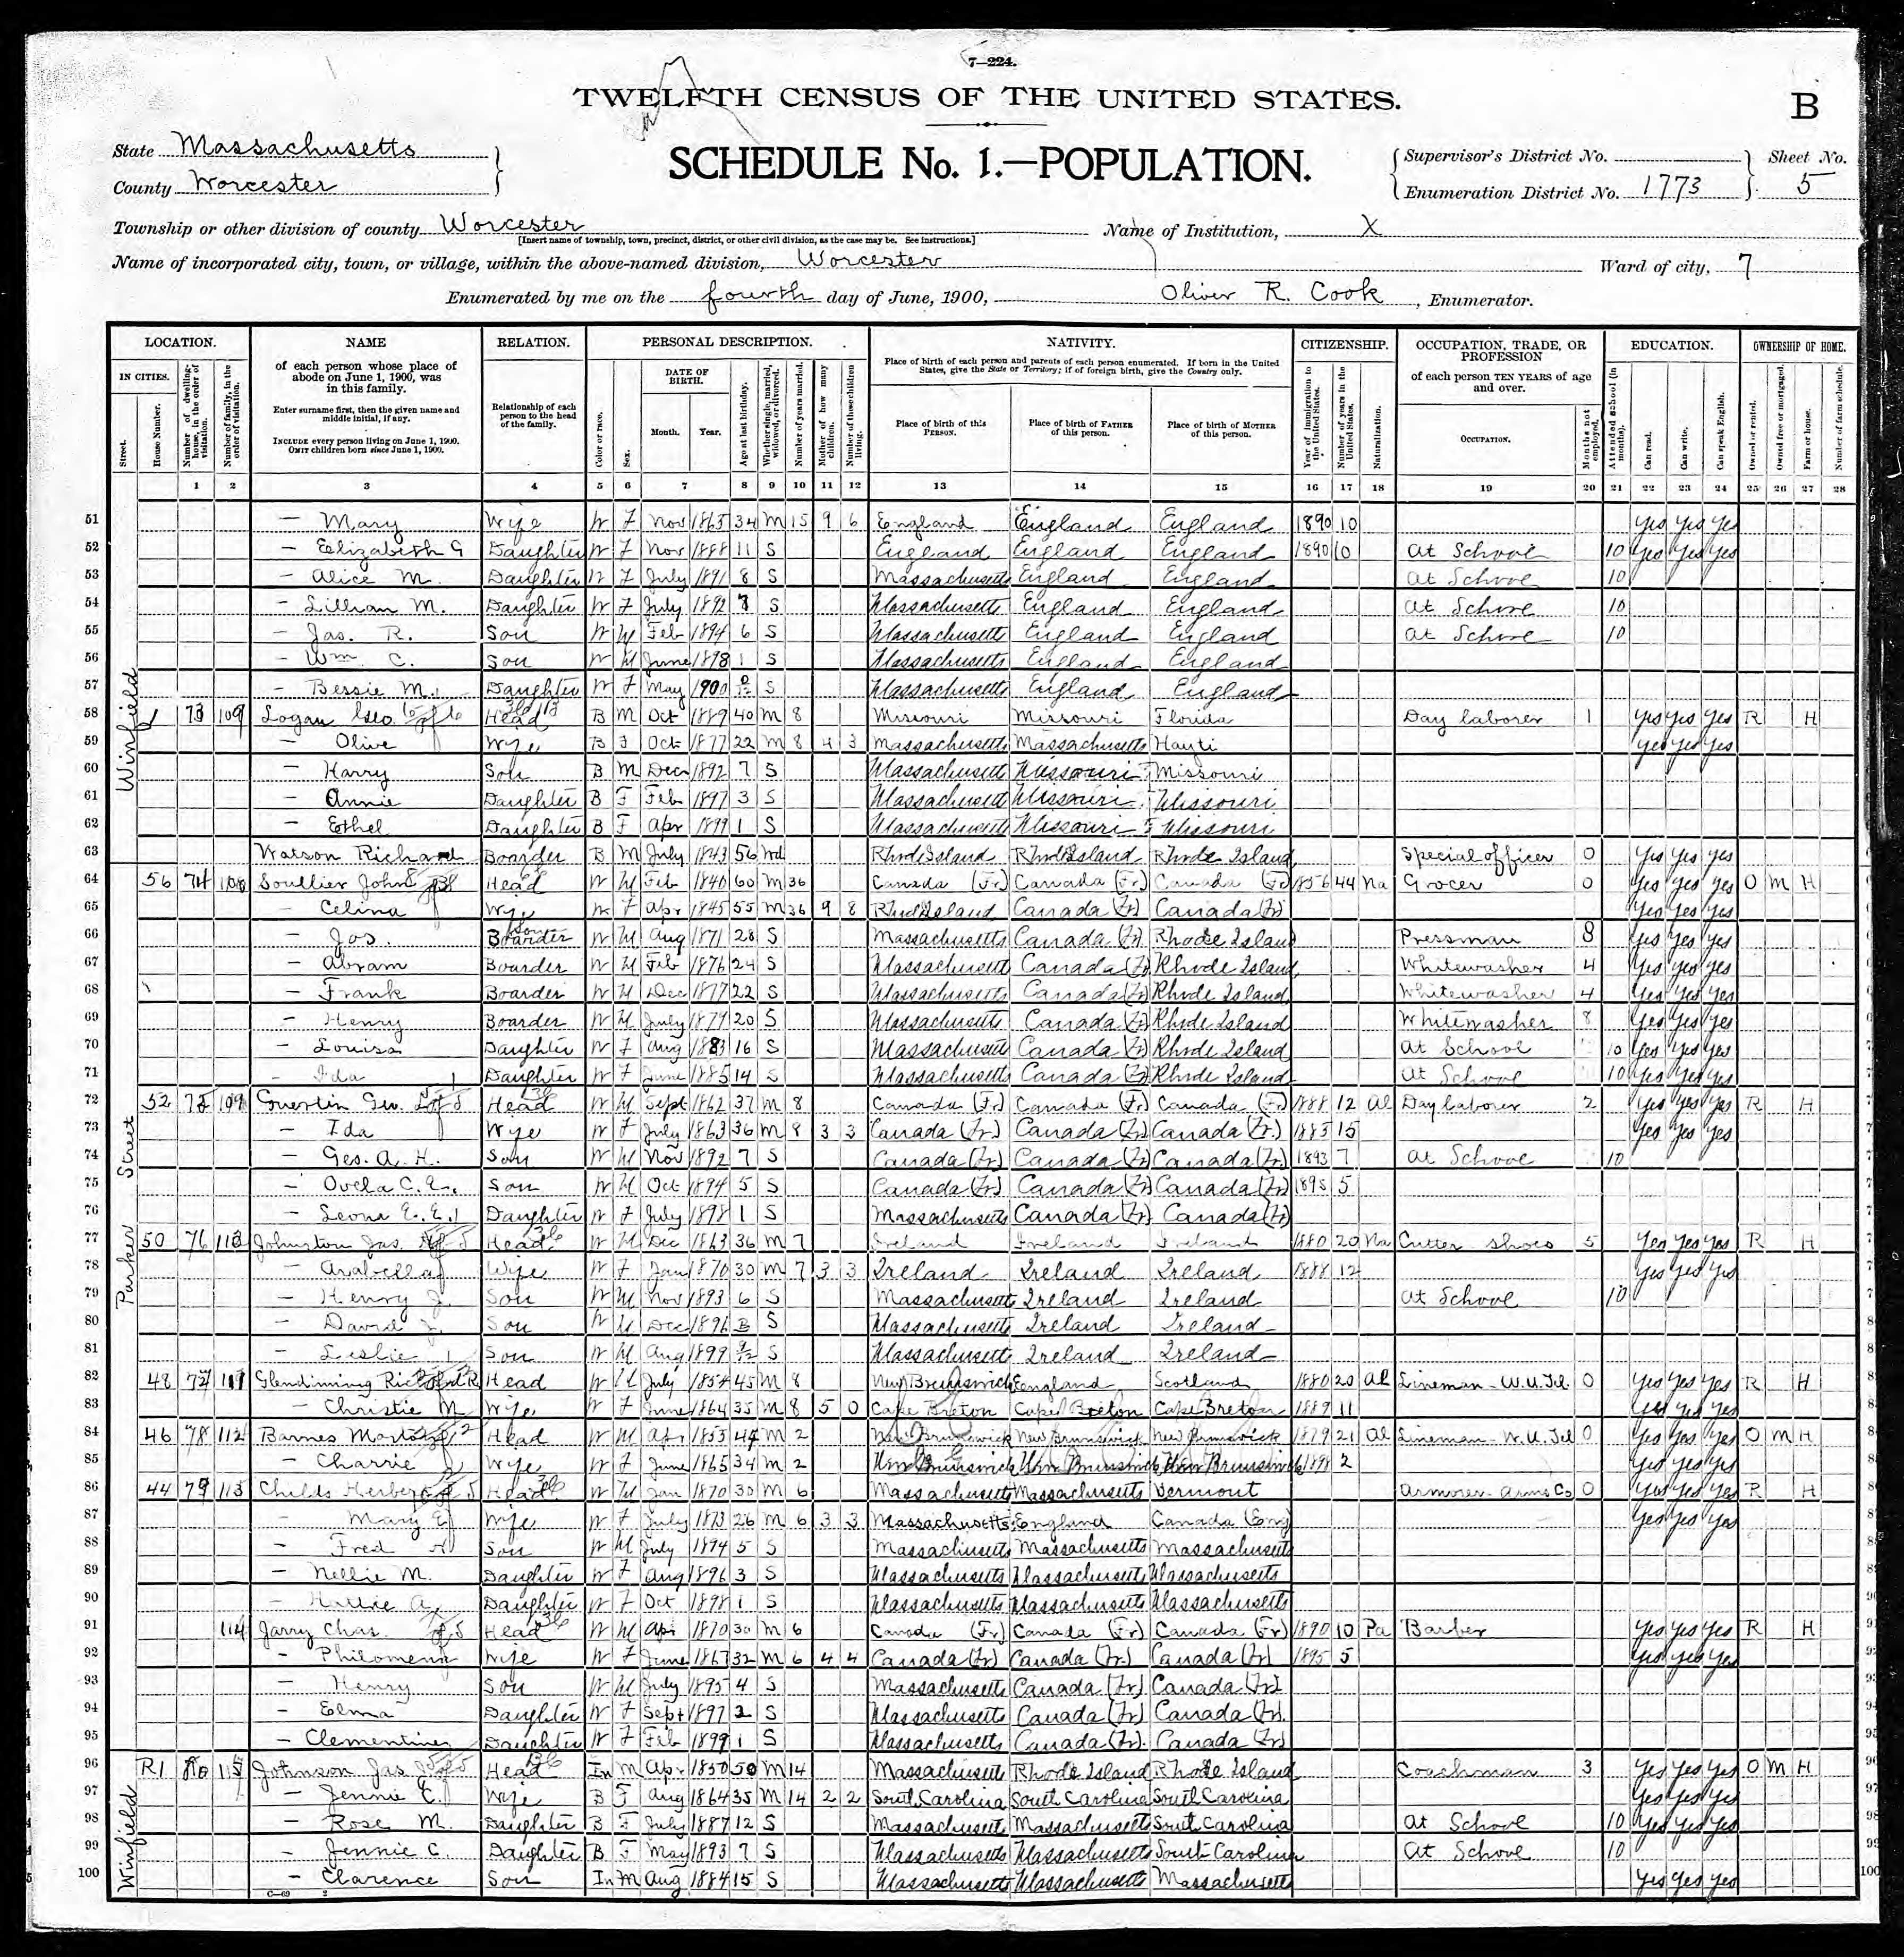 7—224.
TWELFTH CENSUS OF THE UNITED STATES.
B
State Massachusetts
County Worcester
SCHEDULE No. 1.—POPULATION.
Supervisor's District No.
Enumeration District No. 1773
Sheet No.
5
Township or other division of county Worcester
[Insert name of township, town, precinct, district, or other civil division, as the case may be. See instructions.]
Name of Institution, X
Name of incorporated city, town, or village, within the above-named division, Worcester
Ward of city, 7
Enumerated by me on the fourth day of June, 1900, Oliver R. Cook, Enumerator.
LOCATION. NAME RELATION. PERSONAL DESCRIPTION. NATIVITY. CITIZENSHIP. OCCUPATION, TRADE, OR PROFESSION EDUCATION. OWNERSHIP OF HOME.
IN CITIES.
Street.
House Number.
Number of dwelling-house, in the order of visitation.
Number of family, in the order of visitation.
of each person whose place of abode on June 1, 1900, was in this family.
Enter surname first, then the given name and middle initial, if any.
INCLUDE every person living on June 1, 1900.
OMIT children born since June 1, 1900.
Relationship of each person to the head of the family.
Color or race.
Sex.
DATE OF BIRTH.
Month. Year.
Age at last birthday.
Whether single, married, widowed, or divorced.
Number of years married.
Mother of how many children.
Number of these children living.
Place of birth of each person and parents of each person enumerated. If born in the United States, give the State or Territory; if of foreign birth, give the Country only.
Place of birth of this PERSON.
Place of birth of FATHER of this person.
Place of birth of MOTHER of this person.
Year of immigration to the United States.
Number of years in the United States.
Naturalization.
of each person TEN YEARS of age and over.
OCCUPATION.
Months not employed.
Attended school (in months).
Can read.
Can write.
Can speak English.
Owned or rented.
Owned free or mortgaged.
Farm or house.
Number of farm schedule.
1 2 3 4 5 6 7 8 9 10 11 12 13 14 15 16 17 18 19 20 21 22 23 24 25 26 27 28
Winfield
51 — Mary Wife W F Nov 1865 34 M 15 9 6 England England England 1890 10 Yes Yes Yes
52 — Elizabeth G Daughter W F Nov 1888 11 S England England England 1890 10 At School 10 Yes Yes Yes
53 — Alice M. Daughter W F July 1891 8 S Massachusetts England England At School 10
54 — Lillian M. Daughter W F July 1892 7 S Massachusetts England England At School 10
55 — Jas. R. Son W M Feb 1894 6 S Massachusetts England England At School 10
56 — Wm C. Son W M June 1898 1 S Massachusetts England England
57 — Bessie M. Daughter W F May 1900 0/12 S Massachusetts England England
58 73 109 Logan Geo Head B M Oct 1889 40 M 8 Missouri Missouri Florida Day laborer 1 Yes Yes Yes R H
59 — Olive Wife B F Oct 1877 22 M 8 4 3 Massachusetts Massachusetts Hayti Yes Yes Yes
60 — Harry Son B M Dec 1892 7 S Massachusetts Missouri Missouri
61 — Annie Daughter B F Feb 1897 3 S Massachusetts Missouri Missouri
62 — Ethel Daughter B F Apr 1899 1 S Massachusetts Missouri Missouri
63 Watson Richard Boarder B M July 1843 56 Wd Rhode Island Rhode Island Rhode Island Special officer 0 Yes Yes Yes
Parker Street
64 56 74 108 Soullier John Head W M Feb 1840 60 M 36 Canada (Fr) Canada (Fr) Canada (Fr) 1856 44 Na Grocer 0 Yes Yes Yes O M H
65 — Celina Wife W F Apr 1845 55 M 36 9 8 Rhode Island Canada (Fr) Canada (Fr) Yes Yes Yes
66 — Jos. Boarder Son W M Aug 1871 28 S Massachusetts Canada (Fr) Rhode Island Pressman 8 Yes Yes Yes
67 — Abram Boarder W M Feb 1876 24 S Massachusetts Canada (Fr) Rhode Island Whitewasher 4 Yes Yes Yes
68 — Frank Boarder W M Dec 1877 22 S Massachusetts Canada (Fr) Rhode Island Whitewasher 4 Yes Yes Yes
69 — Henry Boarder W M July 1879 20 S Massachusetts Canada (Fr) Rhode Island Whitewasher 8 Yes Yes Yes
70 — Louisa Daughter W F Aug 1883 16 S Massachusetts Canada (Fr) Rhode Island At School 10 Yes Yes Yes
71 — Ida Daughter W F June 1885 14 S Massachusetts Canada (Fr) Rhode Island At School 10 Yes Yes Yes
72 52 75 109 Guertin Geo. Head W M Sept 1862 37 M 8 Canada (Fr.) Canada (Fr.) Canada (Fr) 1888 12 Al Day laborer 2 Yes Yes Yes R H
73 — Ida Wife W F July 1863 36 M 8 3 3 Canada (Fr) Canada (Fr) Canada (Fr.) 1885 15 Yes Yes Yes
74 — Geo. A. H. Son W M Nov 1892 7 S Canada (Fr) Canada (Fr) Canada (Fr) 1893 7 At School 10
75 — Ovela C. E. Son W M Oct 1894 5 S Canada (Fr) Canada (Fr) Canada (Fr) 1895 5
76 — Leona E. E. Daughter W F July 1898 1 S Massachusetts Canada (Fr) Canada (Fr)
77 50 76 110 Johnston Jas. Head W M Dec 1863 36 M 7 Ireland Ireland Ireland 1880 20 Na Cutter Shoes 5 Yes Yes Yes R H
78 — Arabella Wife W F Jan 1870 30 M 7 3 3 Ireland Ireland Ireland 1888 12 Yes Yes Yes
79 — Henry J. Son W M Nov 1893 6 S Massachusetts Ireland Ireland At School 10
80 — David J. Son W M Dec 1896 3 S Massachusetts Ireland Ireland
81 — Leslie Son W M Aug 1899 9/12 S Massachusetts Ireland Ireland
82 48 77 111 Glendinning Head W M July 1854 45 M 8 New Brunswick England Scotland 1880 20 Al Lineman - W.U.Tel. 0 Yes Yes Yes R H
83 — Christie M Wife W F June 1864 35 M 8 5 0 Cape Breton Cape Breton Cape Breton 1889 11 Yes Yes Yes
84 46 78 112 Barnes Head W M Apr 1853 47 M 2 New Brunswick New Brunswick New Brunswick 1879 21 Al Lineman - W.U.Tel 0 Yes Yes Yes O M H
85 — Charrie Wife W F June 1865 34 M 2 New Brunswick New Brunswick New Brunswick 1898 2 Yes Yes Yes
86 44 79 113 Childs Herbert Head W M Jan 1870 30 M 6 Massachusetts Massachusetts Vermont Armorer Arms Co 0 Yes Yes Yes R H
87 — Mary E Wife W F July 1873 26 M 6 3 3 Massachusetts England Canada (Eng) Yes Yes Yes
88 — Fred Son W M July 1894 5 S Massachusetts Massachusetts Massachusetts
89 — Nellie M. Daughter W F Aug 1896 3 S Massachusetts Massachusetts Massachusetts
90 — Hattie A. Daughter W F Oct 1898 1 S Massachusetts Massachusetts Massachusetts
91 114 Jarry Chas. Head W M Apr 1870 30 M 6 Canada (Fr) Canada (Fr) Canada (Fr) 1890 10 Pa Barber Yes Yes Yes R H
92 — Philomena Wife W F June 1867 32 M 6 4 4 Canada (Fr) Canada (Fr) Canada (Fr) 1895 5 Yes Yes Yes
93 — Henry Son W M July 1895 4 S Massachusetts Canada (Fr) Canada (Fr)
94 — Elma Daughter W F Sept 1897 2 S Massachusetts Canada (Fr) Canada (Fr).
95 — Clementine Daughter W F Feb 1899 1 S Massachusetts Canada (Fr). Canada (Fr)
Winfield
96 R1 80 115 Johnson Jas Head In M Apr 1850 50 M 14 Massachusetts Rhode Island Rhode Island Coachman 3 Yes Yes Yes O M H
97 — Jennie C. Wife B F Aug 1864 35 M 14 2 2 South Carolina South Carolina South Carolina Yes Yes Yes
98 — Rose M. Daughter B F July 1887 12 S Massachusetts Massachusetts South Carolina At School 10 Yes Yes Yes
99 — Jennie C. Daughter B F May 1893 7 S Massachusetts Massachusetts South Carolina At School 10
100 — Clarence Son In M Aug 1884 15 S Massachusetts Massachusetts Massachusetts Yes Yes Yes
C—69 2